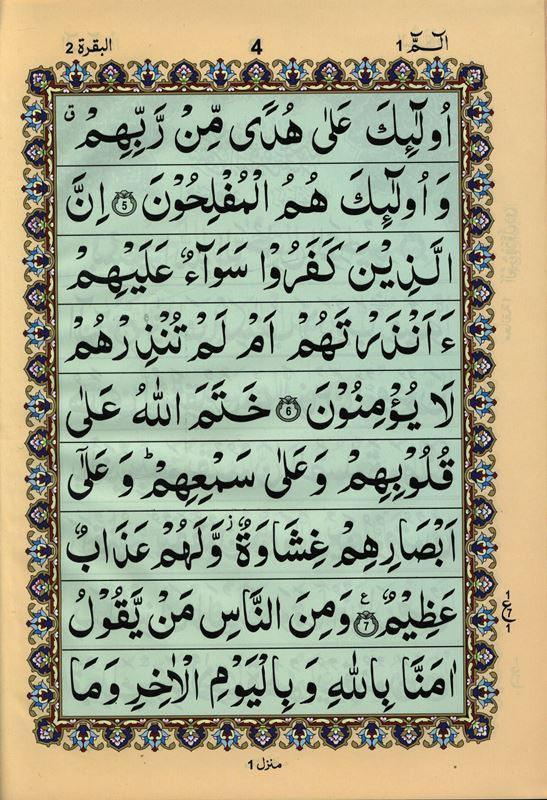 الٓـمّٓ 1
4
البقرة 2
اُولٰٓئِكَ عَلٰى هُدًى مِّنْ رَّبِّهِمْ ق
وَ اُولٰٓئِكَ هُمُ الْمُفْلِحُوْنَ 5 اِنَّ
الَّذِيْنَ كَفَرُوْا سَوَآءٌ عَلَيْهِمْ
ءَاَنْذَرْتَهُمْ اَمْ لَمْ تُنْذِرْهُمْ
لَا يُؤْمِنُوْنَ 6 خَتَمَ اللّٰهُ عَلٰى
قُلُوْبِهِمْ وَ عَلٰى سَمْعِهِمْ ؕ وَ عَلٰٓى
اَبْصَارِهِمْ غِشَاوَةٌ ز وَّ لَهُمْ عَذَابٌ
عَظِيْمٌ ع 7 وَ مِنَ النَّاسِ مَنْ يَّقُوْلُ
اٰمَنَّا بِاللّٰهِ وَ بِالْيَوْمِ الْاٰخِرِ وَ مَا
1
ع 7
1
منزل 1